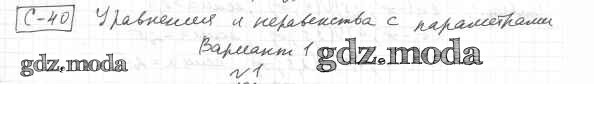 С-40 Уравнения и неравенства с параметрами
Вариант 1 gdz.moda
gdz.moda
№1